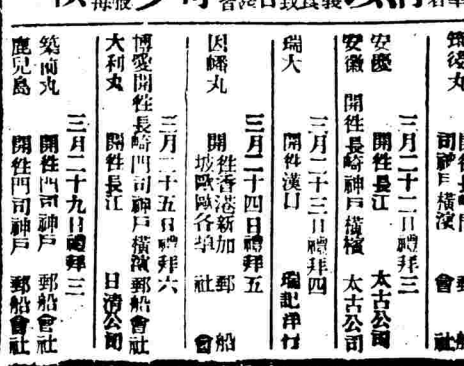 筑後丸
司神戶橫濱
會社
三月二十二日禮拜三
安慶 開往長江 太古公司
安徽 開往長崎神戶橫檳 太古公司
三月二十三日禮拜四
瑞大 開往漢口 瑞記洋行
三月二十四日禮拜五
因幡丸 開往香港新加坡歐歐各埠 郵船會社
三月二十五日禮拜六
博愛 開往長崎門司神戶橫濱 郵船會社
大利丸 開往長江 日清公司
三月二十九日禮拜三
築前丸 開往門司神戶 郵船會社
鹿兒島 開往門司神戶 郵船會社